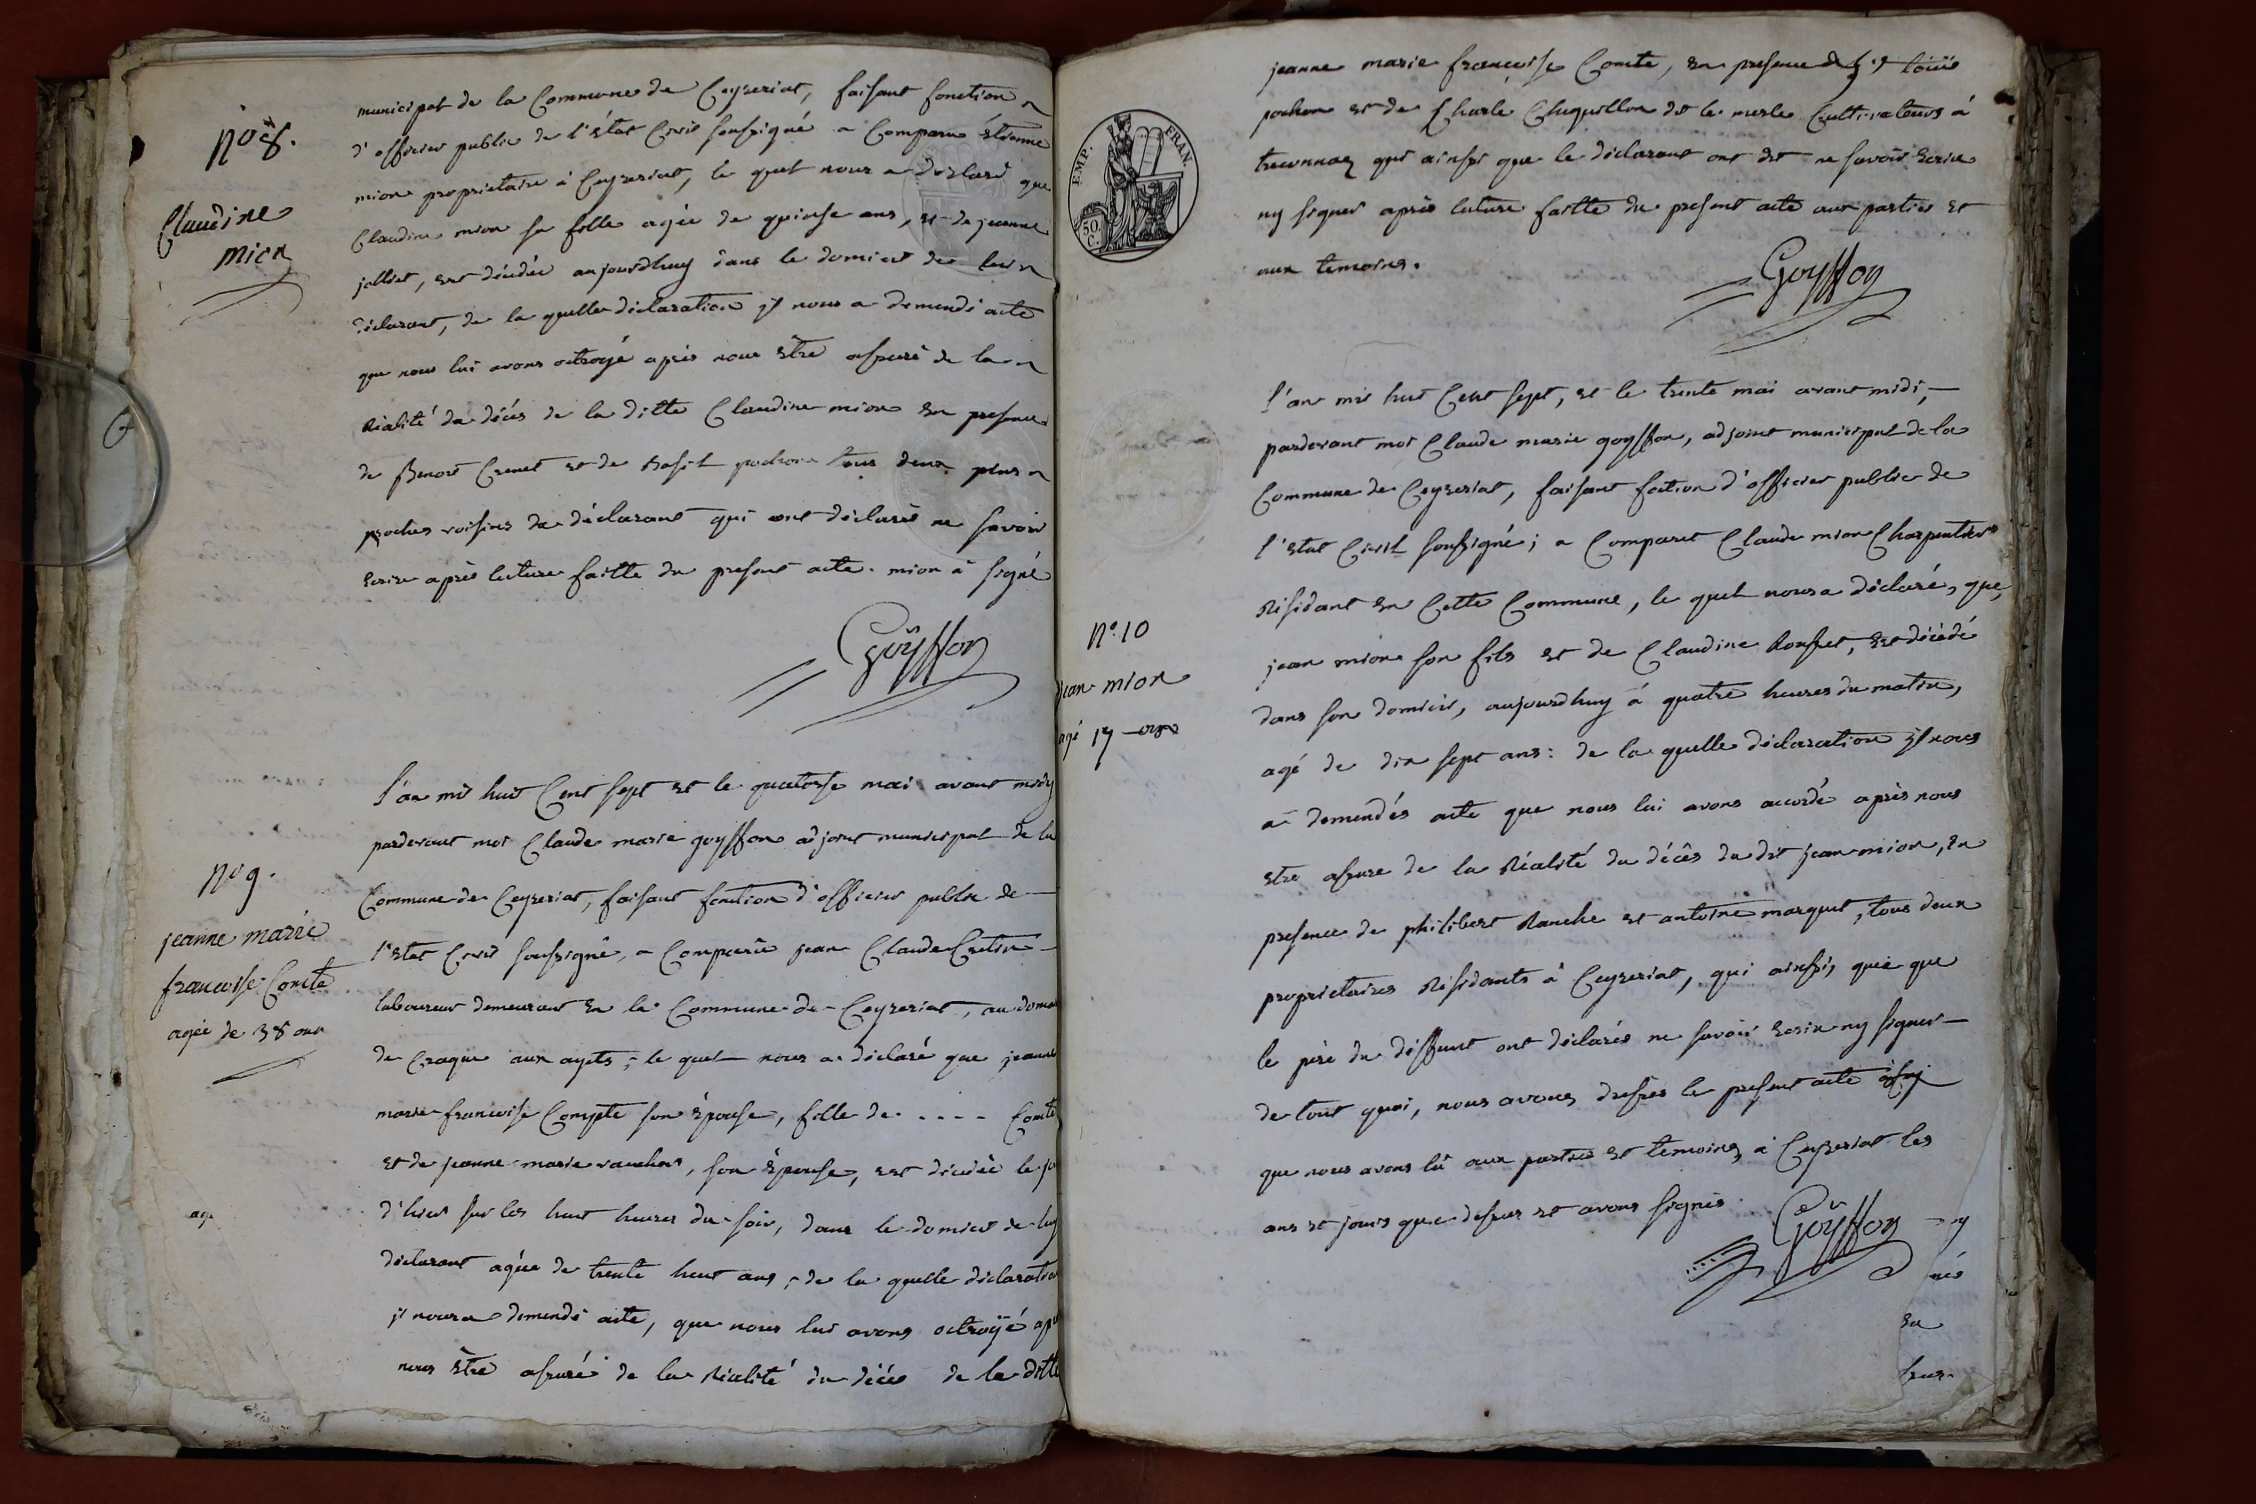 municipal de la Commune de Ceyzeriat, faisant fonction
d'officier public de l'état Civil soussigné a Comparu étienne
mion proprietaire a Ceyzeriat, le quel nous a déclaré que
Claudine mion sa fille agée de quinse ans, et de jeanne
jollet, est décédée aujourdhuy dans le domicil de lui
déclarant, de la quelle déclaration jl nous a demendé acte
que nous lui avons octroyé après nous être assuré de la
Réalité du décés de la ditte Claudine mion en presence
de Benoit Crenet et de Basil pochon tous deux plus
proches voisins du déclarant qui ont déclaré ne savoir
écrire après lecture faitte du present acte. mion a signé
Goÿffon
N° 8.
Claudine
mion
l'an mil huit Cent sept et le quatorse mai avant midy
pardevant moi Claude marie goyffon adjoint municipal de la
Commune de Ceyzeriat, faisant fonction d'officier public de
l'état Civil soussigné, a Comparu jean Claude Cretin
laboureur demeurant en la Commune de Ceyzeriat, au
de Craque aux ayets, le quel nous a déclaré que jeanne
marie francoise Compte son épouse, fille de . . . . Comte
et de jeanne marie vauchon, son épouse, est décédée le
d'hier sur les huit heures du soir, dans le domicil de luy
déclarant agée de trente huit ans, de la quelle déclaration
jl nous a demendé acte, que nous lui avons octroÿé
nous être assuré de la Réalité du décés de la ditte
N° 9.
jeanne marie
francoise Comte
agée de 38 ans
age
jeanne marie francoise Comte, en presence de loüis
pochon et de Charle Chuquillon dit le merle Cultivateurs à
treconnaz qui ainssi que le déclarant ont dit ne savoir écrire
ny signer après lecture faitte du present acte aux parties et
aux temoins.
Goyffon
EMP. FRAN.
50. C.
l'an mil huit Cent sept, et le trente mai avant midi,
pardevant moi Claude marie goyffon, adjoint municipal de la
Commune de Ceyzeriat, faisant foction d'officier public de
l'état Civil soussigné; a Comparut Claude mion Charpentier
Résidant en Cette Commune, le quel nous a déclaré, que,
jean mion son fils et de Claudine Rousset, est décédé
dans son domicil, aujourdhuy à quatre heures du matin,
agé de dix sept ans: de la quelle déclaration jl nous
a demendés acte que nous lui avons accordé après nous
etre assure de la Réalité du décês du dit jean mion, en
presence de philibert Ranche et antoine marquet, tous deux
proprietaires Résidants à Ceyzeriat, qui ainssi, que
le père du deffunt ont déclarés ne savoir écrire ny signer
de tout quoi, nous avons dressés le present acte
que nous avons lû aux parties et temoins, à Ceyzeriat les
ans et jours que dessus et avons signés
Goÿffon
N°. 10
jean mion
agé 17 ans
ny
nés
en